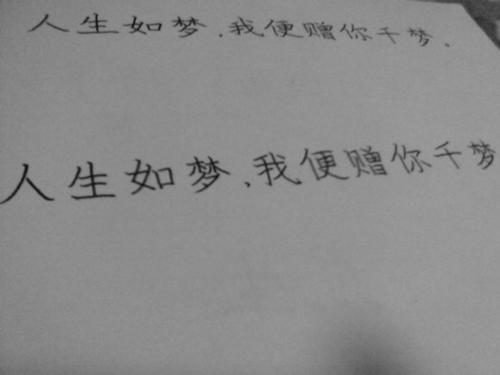 人生如梦，我便赠你千梦．
人生如梦，我便赠你千梦